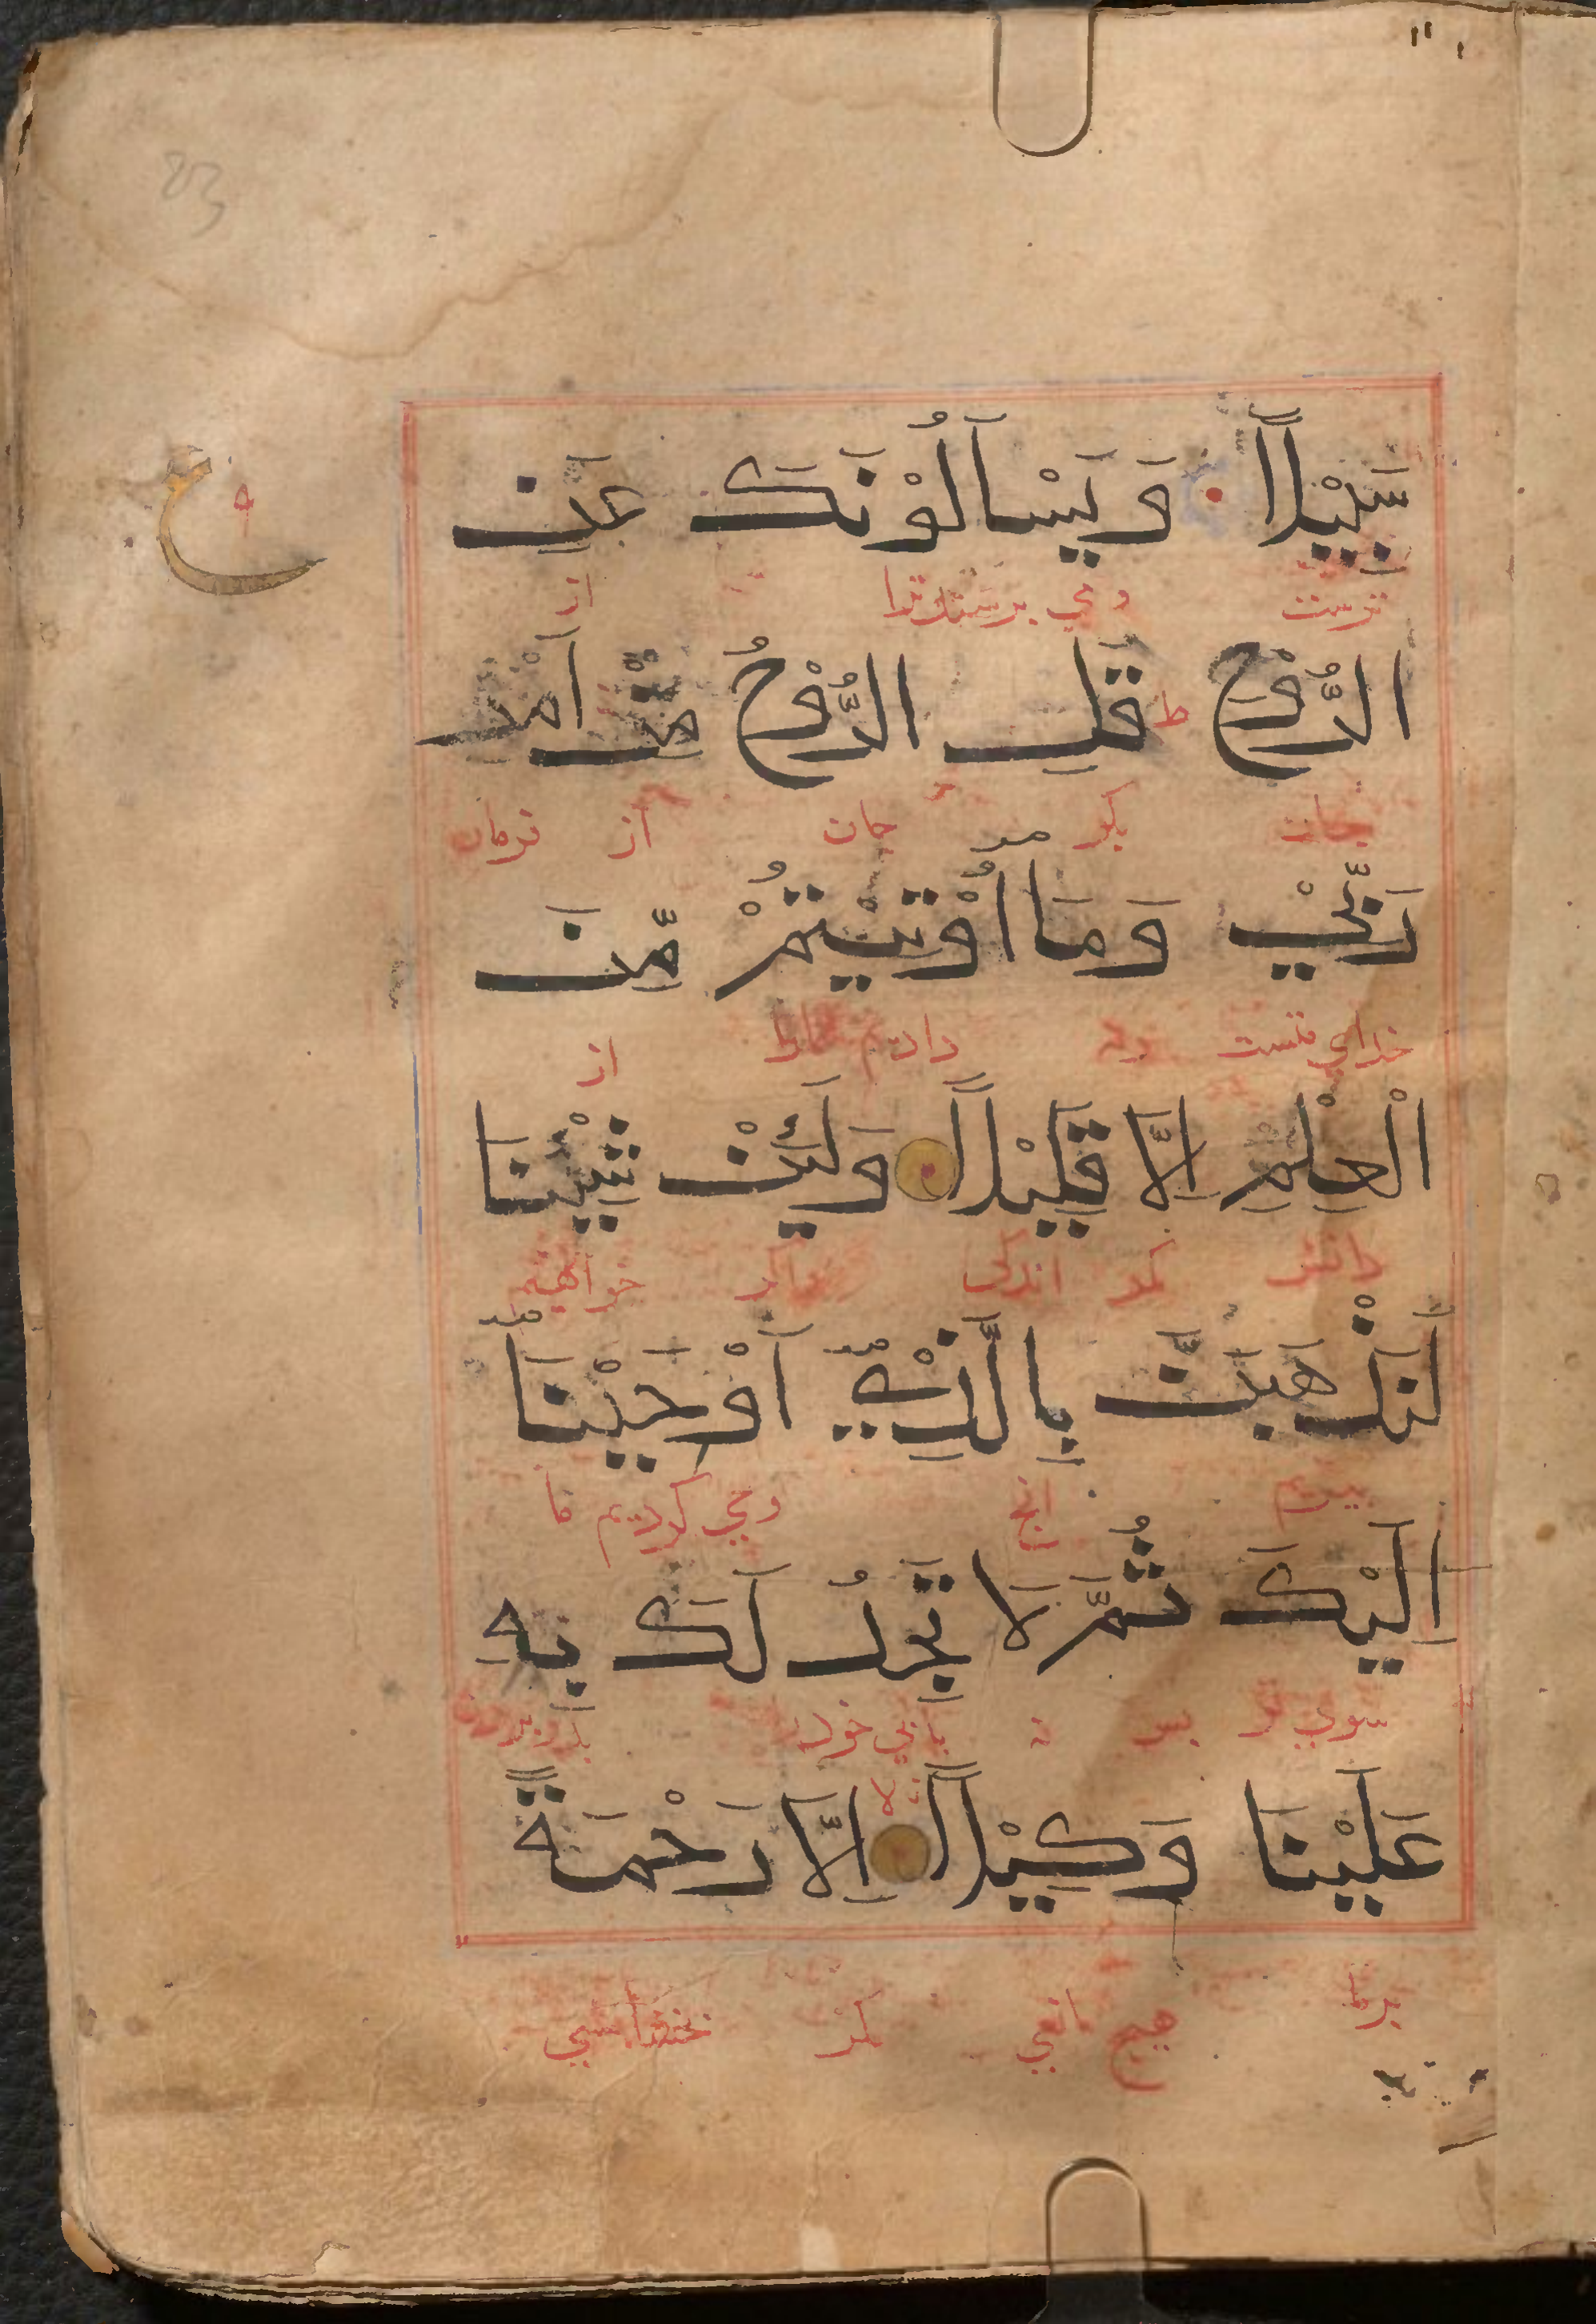 سَبِيْلاً وَيَسْاَلُوْنَكَ عَنِ
ترست ومي برسندترا از
الرُّوْحِ ط قُلِ الرُّوْحُ مِنْ اَمْرِ
جان بكو جان از فرمان
رَبِّيْ وَمَا اُوْتِيْتُمْ مِّنَ
خداي منست ونه دادیم شمارا از
الْعِلْمِ اِلَّا قَلِيْلاً وَلَئِنْ شِئْنَا
دانش مكر اندكى واكر خواهيم
لَنَذْهَبَنَّ بِالَّذِيْ اَوْحَيْنَا
ببريم انج وحي كرديم ما
اِلَيْكَ ثُمَّ لَا تَجِدُ لَكَ بِهِ
سوي تو بس نه يابي خودرا
عَلَيْنَا وَكِيْلاً لا اِلَّا رَحْمَةً
برما هيچ مكر
ع
83